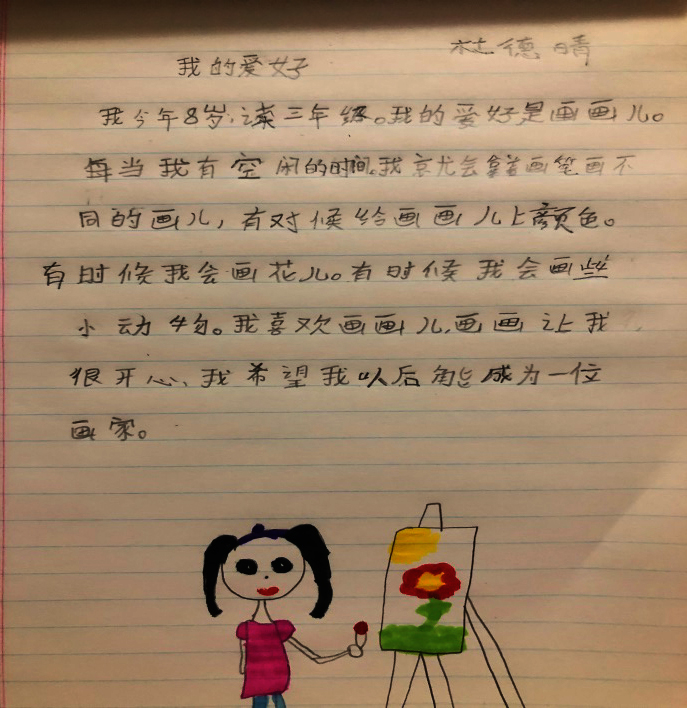 我的爱好 林德晴
我今年8岁,读三年级。我的爱好是画画儿。
每当我有空闲的时间,我就会拿着画笔画不
同的画儿,有对候给画画儿上颜色。
有时候我会画花儿。有时候我会画些
小动物。我喜欢画画儿,画画让我
很开心、我希望我以后能成为一位
画家。